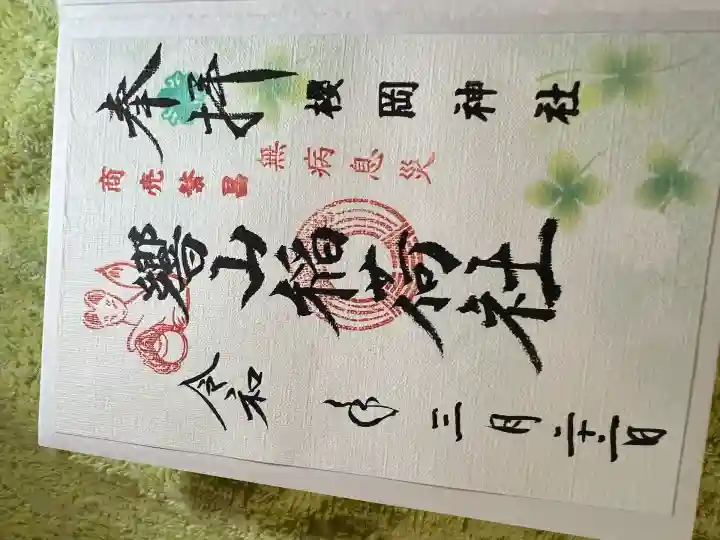 奉拝
櫻岡神社
無病息災
商売繁昌
響山稲荷社
令和
三月二十二日